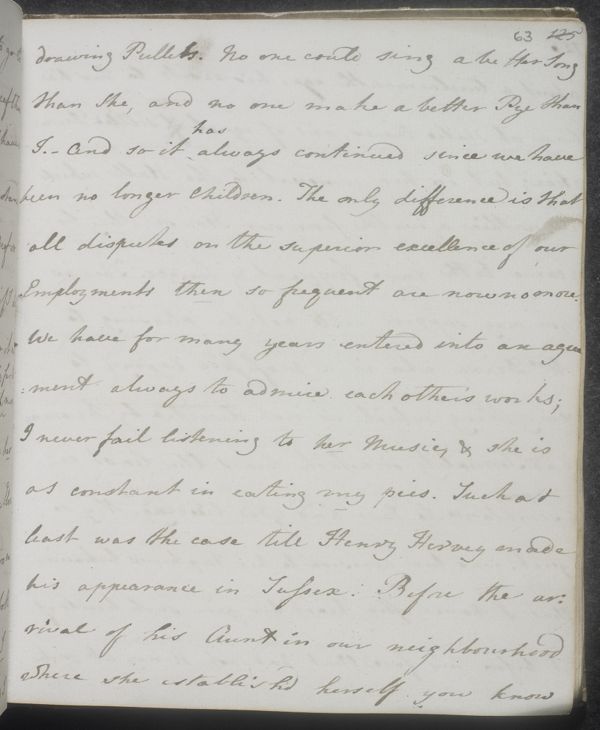 63 125
drawing Pullets. No one could sing a better Song
than She, and no one make a better Pye than
has
I. – And so it always continued since we have
been no longer Children. The only difference is that
all disputes on the superior excellence of our
Employments then so frequent are now no more.
We have for many years entered into an agree
:ment always to admire each other's works;
I never fail listening to her Music, & she is
as constant in eating my pies. Such at
least was the case till Henry Hervey made
his appearance in Sussex. Before the ar:
rival of his Aunt in our neighbourhood
where she establish'd herself you know